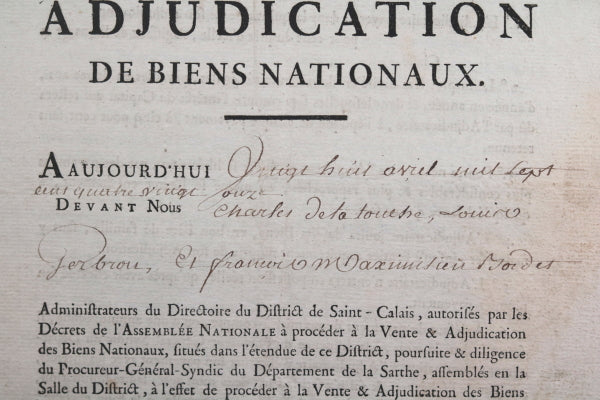 ADJUDICATION
DE BIENS NATIONAUX.
AAUJOURD'HUI Vingt huit avril mil sept
cens quatre vingt onze
DEVANT Nous Charles de la touche, Louis
Gerbrou, Et françois Maximilien Bordet
Administrateurs du Directoire du District de Saint-Calais, autorisés par les
Décrets de l'ASSEMBLÉE NATIONALE à procéder à la Vente & Adjudication
des Biens Nationaux, situés dans l'étendue de ce District, poursuite & diligence
du Procureur-Général-Syndic du Département de la Sarthe, assemblés en la
Salle du District, à l'effet de procéder à la Vente & Adjudication des Biens